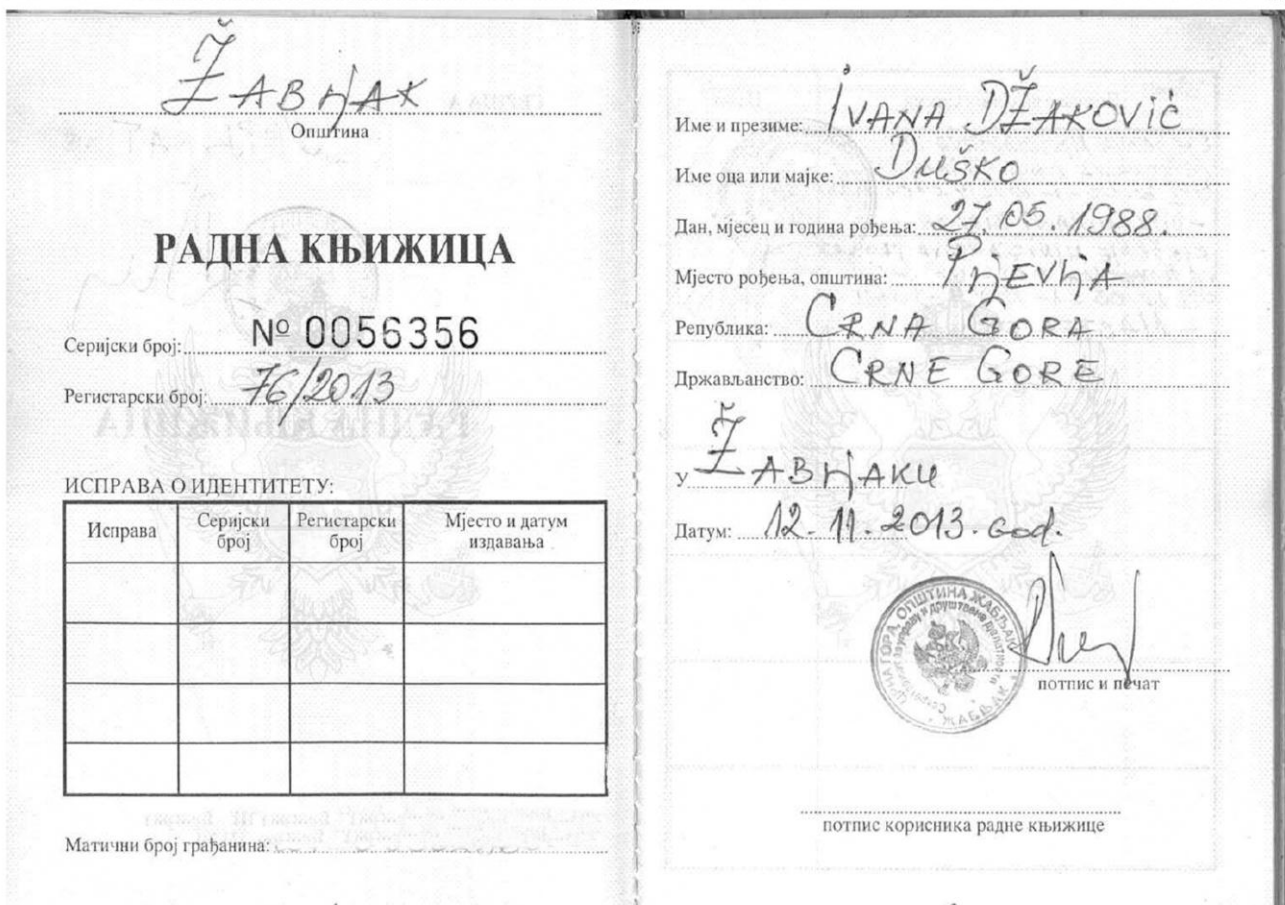 ŽABLJAK
Општина
РАДНА КЊИЖИЦА
Серијски број: № 0056356
Регистарски број: 76/2013
ИСПРАВА О ИДЕНТИТЕТУ:
Исправа Серијски број Регистарски број Мјесто и датум издавања
Матични број грађанина:
Име и презиме: IVANA DŽAKOVIĆ
Име оца или мајке: DUŠKO
Дан, мјесец и година рођења: 27.05.1988.
Мјесто рођења, општина: PLJEVLJA
Република: CRNA GORA
Држављанство: CRNE GORE
у ŽABLJAKU
Датум: 12.11.2013. god.
ЦРНА ГОРА, ОПШТИНА ЖАБЉАК
ЖАБЉАК
потпис и печат
потпис корисника радне књижице